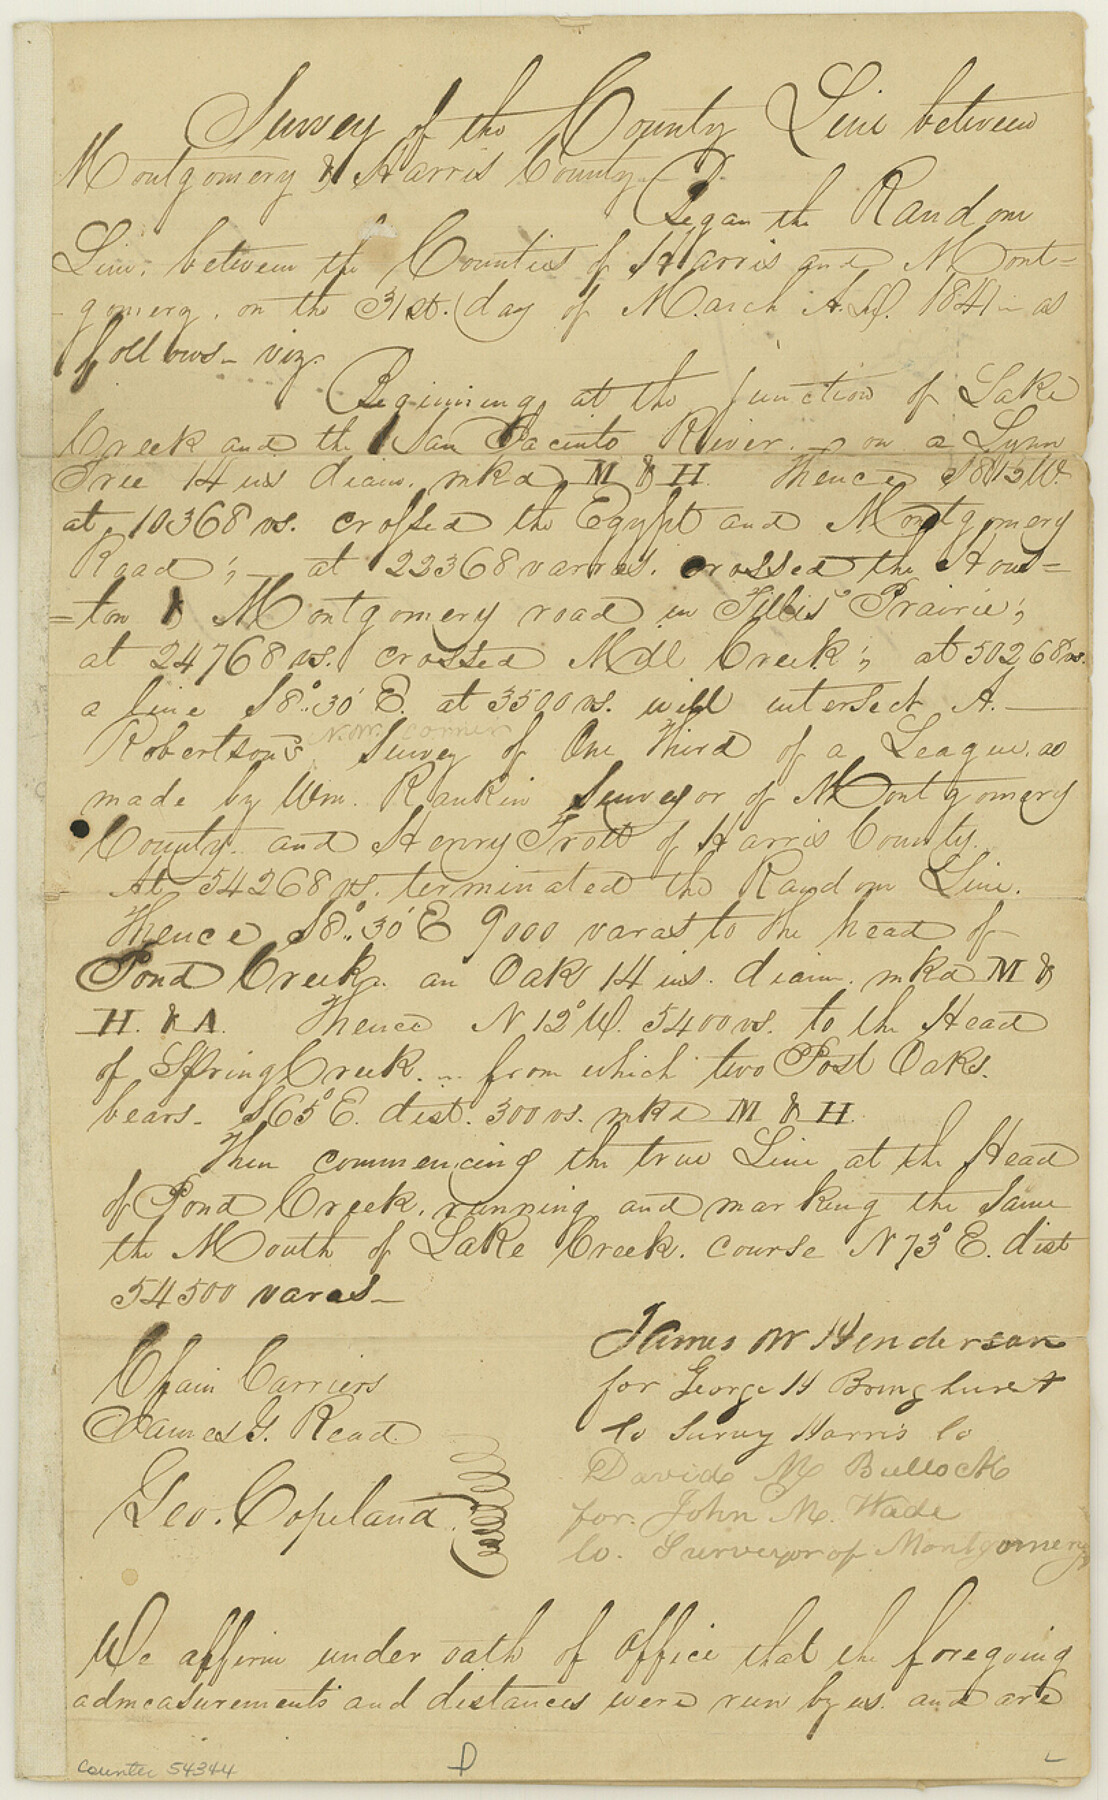 Survey of the County Line between
Montgomery & Harris County.
Began the Random
Line, between the Counties of Harris and Mont=
gomery, on the 31st. day of March A.D. 1841 - as
follows - viz.
Beginning, at the junction of Lake
Creek and the San Jacinto River. - on a Lynn
Tree 14 ins diam. mkd M & H. Thence S 81° W.
at, 10368 vs. crossed the Egypt and Montgomery
Road; at 22368 varas. crossed the Hous=
=ton & Montgomery road in Tillis' Prairie;
at 24768 vs. crossed Mill Creek; at 50268 vs.
a line S 8°.. 30' E. at 3500 vs. will intersect A.
N.W. corner
Robertson's Survey of One Third of a League. as
made by Wm. Rankin Surveyor of Montgomery
County. and Henry Trott of Harris County.
At 54268 vs. terminated the Random Line.
Thence S 8°.. 30' E 9000 varas to the head of
Pond Creek. an Oak 14 ins. diam. mkd M &
H. & A. Thence N 12° W. 5400 vs. to the Head
of Spring Creek. - from which two Post Oaks.
bears - S 65° E. dist. 300 vs. mkd M & H.
Then commencing the true Line at the Head
of Pond Creek, running and marking the Same
the Mouth of Lake Creek. course N 73° E. dist
54500 varas -
Chain Carriers
James G. Read
Geo. Copeland
James W Henderson
for George H Bringhurst
Co Survy Harris Co
David M Bullock
for. John M. Wade
Co. Surveyor of Montgomery
We affirm under oath of office that the foregoing
admeasurements and distances were run by us. and are
counter 54344